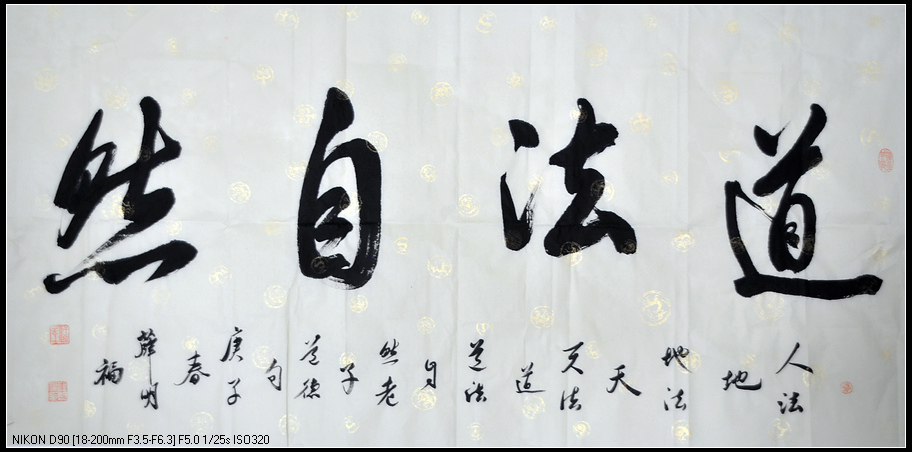 道法自然
人法
地
地法
天
天法
道
道法
自
然老
子
道德
句
庚子
春
薛明
福
NIKON D90 [18-200mm F3.5-F6.3] F5.0 1/25s ISO320